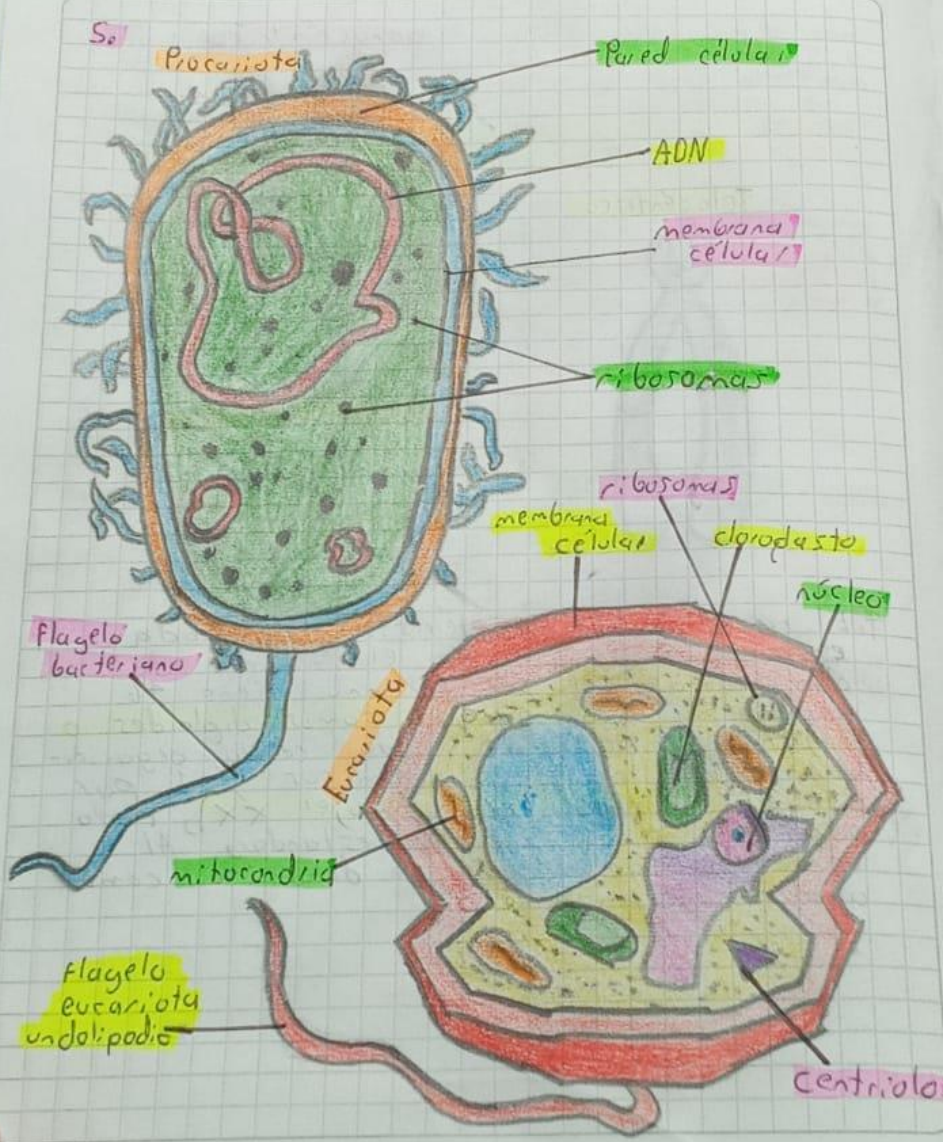 5.
Procariota
Pared célular
ADN
membrana
célular
ribosomas
ribosomas
membrana
célular
cloroplasto
núcleo
flagelo
bacteriano
Eucariota
mitocondria
flagelo
eucariota
undolipodio
centriolo